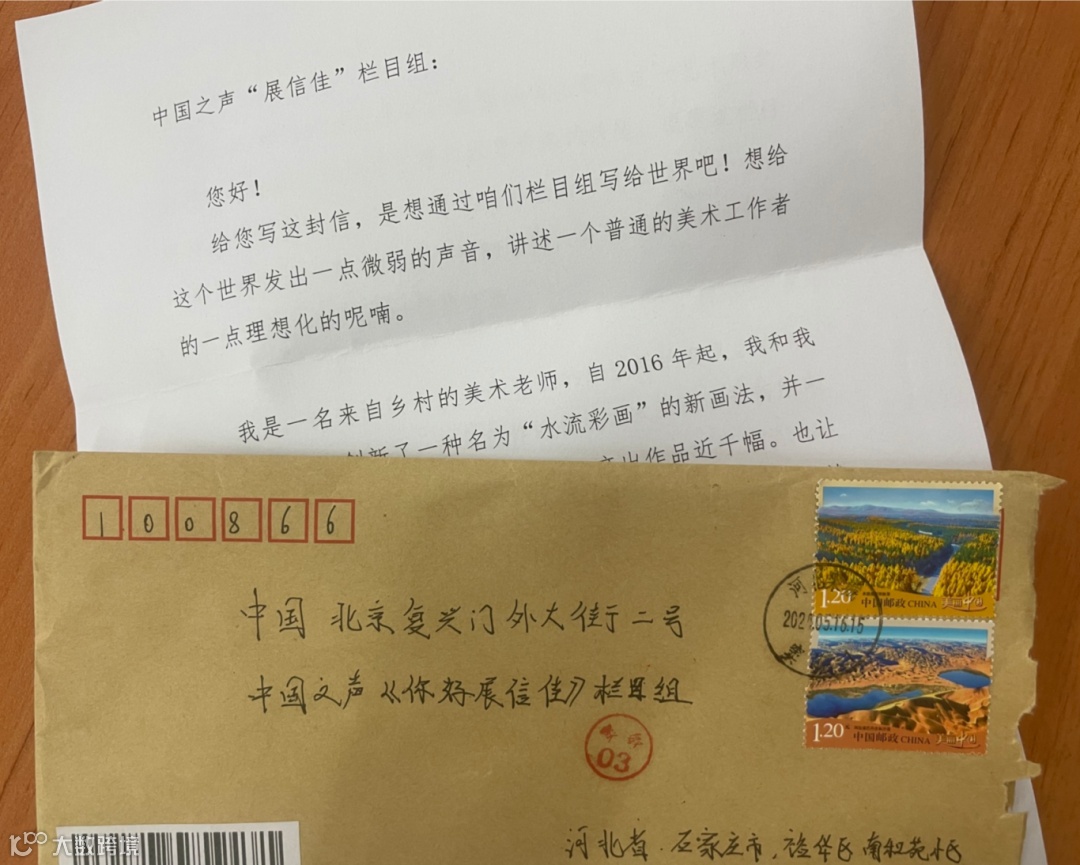 中国之声“展信佳”栏目组：
您好！
给您写这封信，是想通过咱们栏目组写给世界吧！想给
这个世界发出一点微弱的声音，讲述一个普通的美术工作者
的一点理想化的呢喃。
我是一名来自乡村的美术老师，自 2016 年起，我和我
创新了一种名为“水流彩画”的新画法，并一
作品近千幅。也让
100866
中国 北京复兴门外大街二号
中国之声《你好展信佳》栏目组
1.20
中国邮政 CHINA
美丽中国
河
05.16.15
1.20
中国邮政 CHINA
美丽中国
03
河北省 石家庄市，裕华区 南栗苑小区
大数跨境